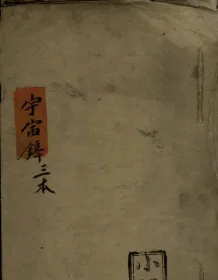 宇宙鋒三本
小